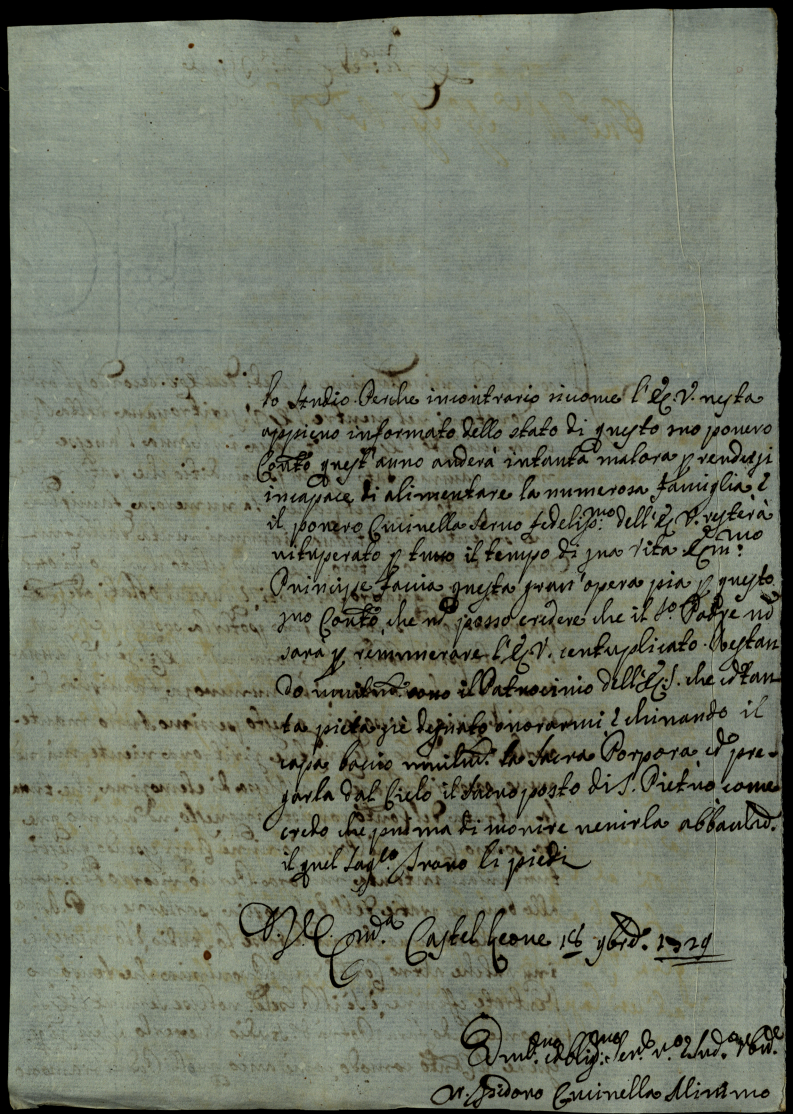 lo studio. Perche incontrario sicome l'Ec: V. resta
appieno informato dello stato di questo suo povero
Conto quest'anno anderà intanta malora p rendersi
incapace di alimentare la numerosa famiglia è
il povero Cucinella servo fedeliss:mo dell'Ec V. resterà
vituperato p tutto il tempo di sua vita Em:mo
Principe faccia questa gran' opera pia p questo
suo Conto, che nõ posso credere che il S.o Padre nõ
sarà p remunerare l'E. V. centuplicato. Restan
do sotto il Patrocinio dell'Ec: V. che cõ tan
ta pietà siè degnato onorarmi è chinando il
capo bacio umilm: la Sacra Porpora cõ pre-
garla dal Cielo il Sacro posto di S. Pietro come
credo che prima di morire venirla
il quel Sag:o Trono li piedi
Castel Leone 18 9bre. 1729
Isidoro Cucinella Minimo